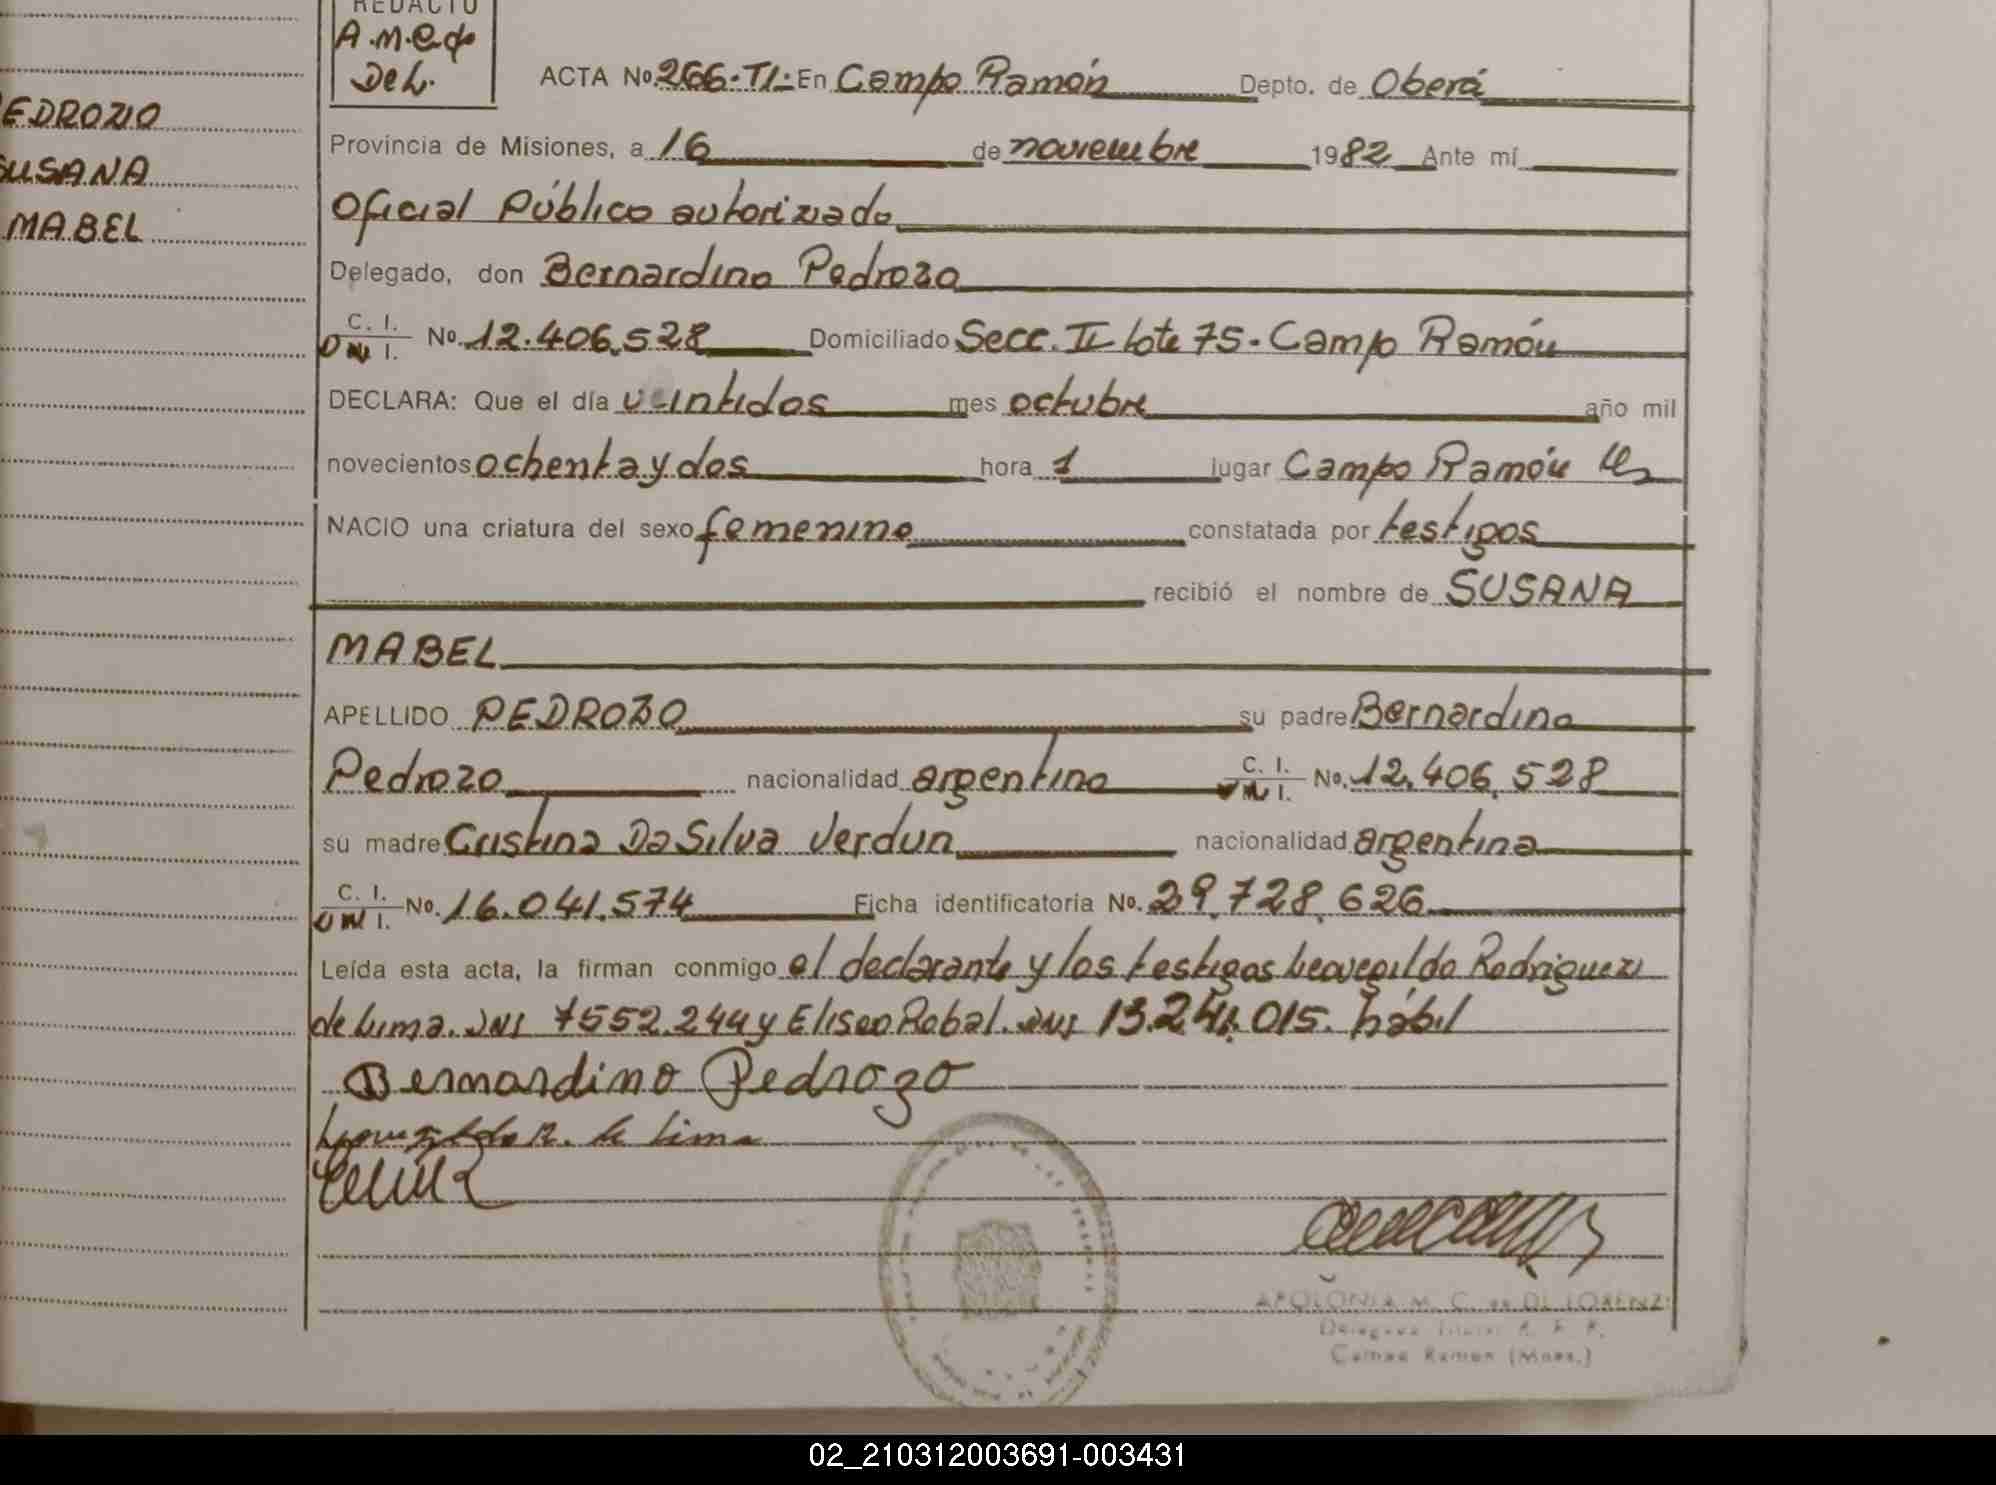 REDACTO
A.M.C. de
De L.
EDROZO
SUSANA
MABEL
ACTA No. 266. TI. En Campo Ramón Depto. de Oberá
Provincia de Misiones, a 16 de noviembre 1982 Ante mí
Oficial Público autorizado
Delegado, don Bernardino Pedrozo
C. I. D N I. No. 12.406.528 Domiciliado Secc. II Lote 75 - Campo Ramón
DECLARA: Que el día veintidos mes octubre año mil
novecientos ochenta y dos hora 1 lugar Campo Ramón
NACIO una criatura del sexo femenino constatada por testigos
recibió el nombre de SUSANA
MABEL
APELLIDO PEDROZO su padre Bernardino
Pedrozo nacionalidad argentino C. I. D N I. No. 12.406.528
su madre Cristina Da Silva Verdun nacionalidad argentina
C. I. D N I. No. 16.041.574 Ficha identificatoria No. 29.728.626
Leída esta acta, la firman conmigo el declarante y los testigos Leovegildo Rodriguez
de Lima. DNI 7552.244 y Eliseo Robal. DNI 13.241.015. hábil
Bernardino Pedrozo
R. de Lima
APOLONIA M. C. de DI LORENZI
Delegada Titular R. P. P.
Campo Ramon (Mnes.)
02_210312003691-003431